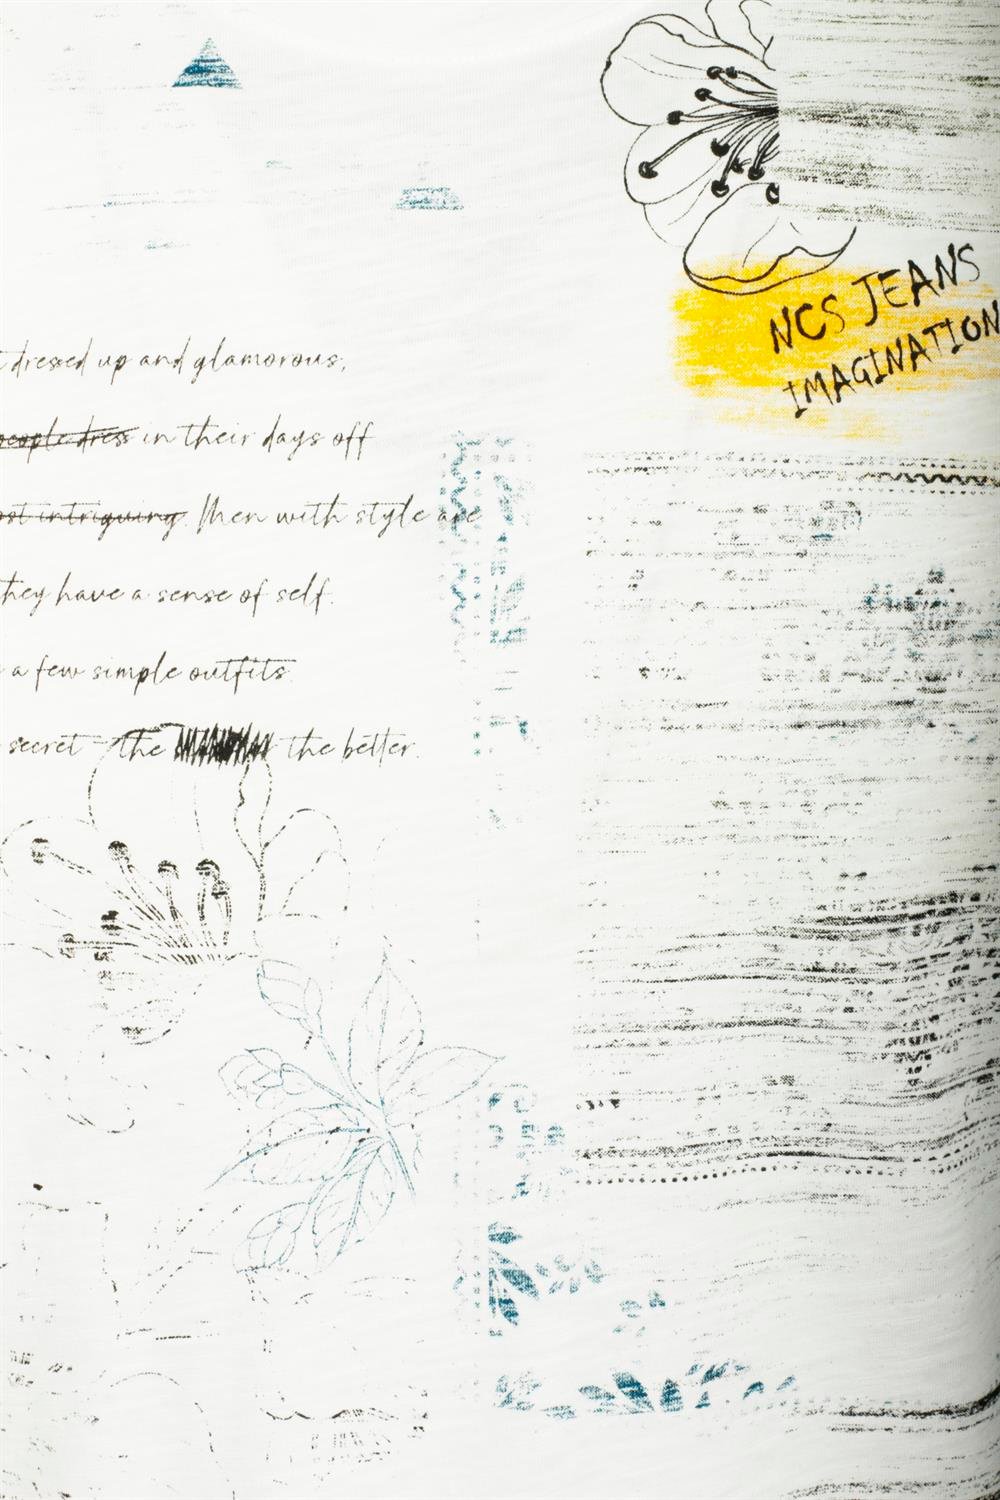 NCS JEANS
IMAGINATION
dressed up and glamorous,
people dress in their days off
ost intriguing. Men with style are
they have a sense of self.
a few simple outfits.
secret - the the better.